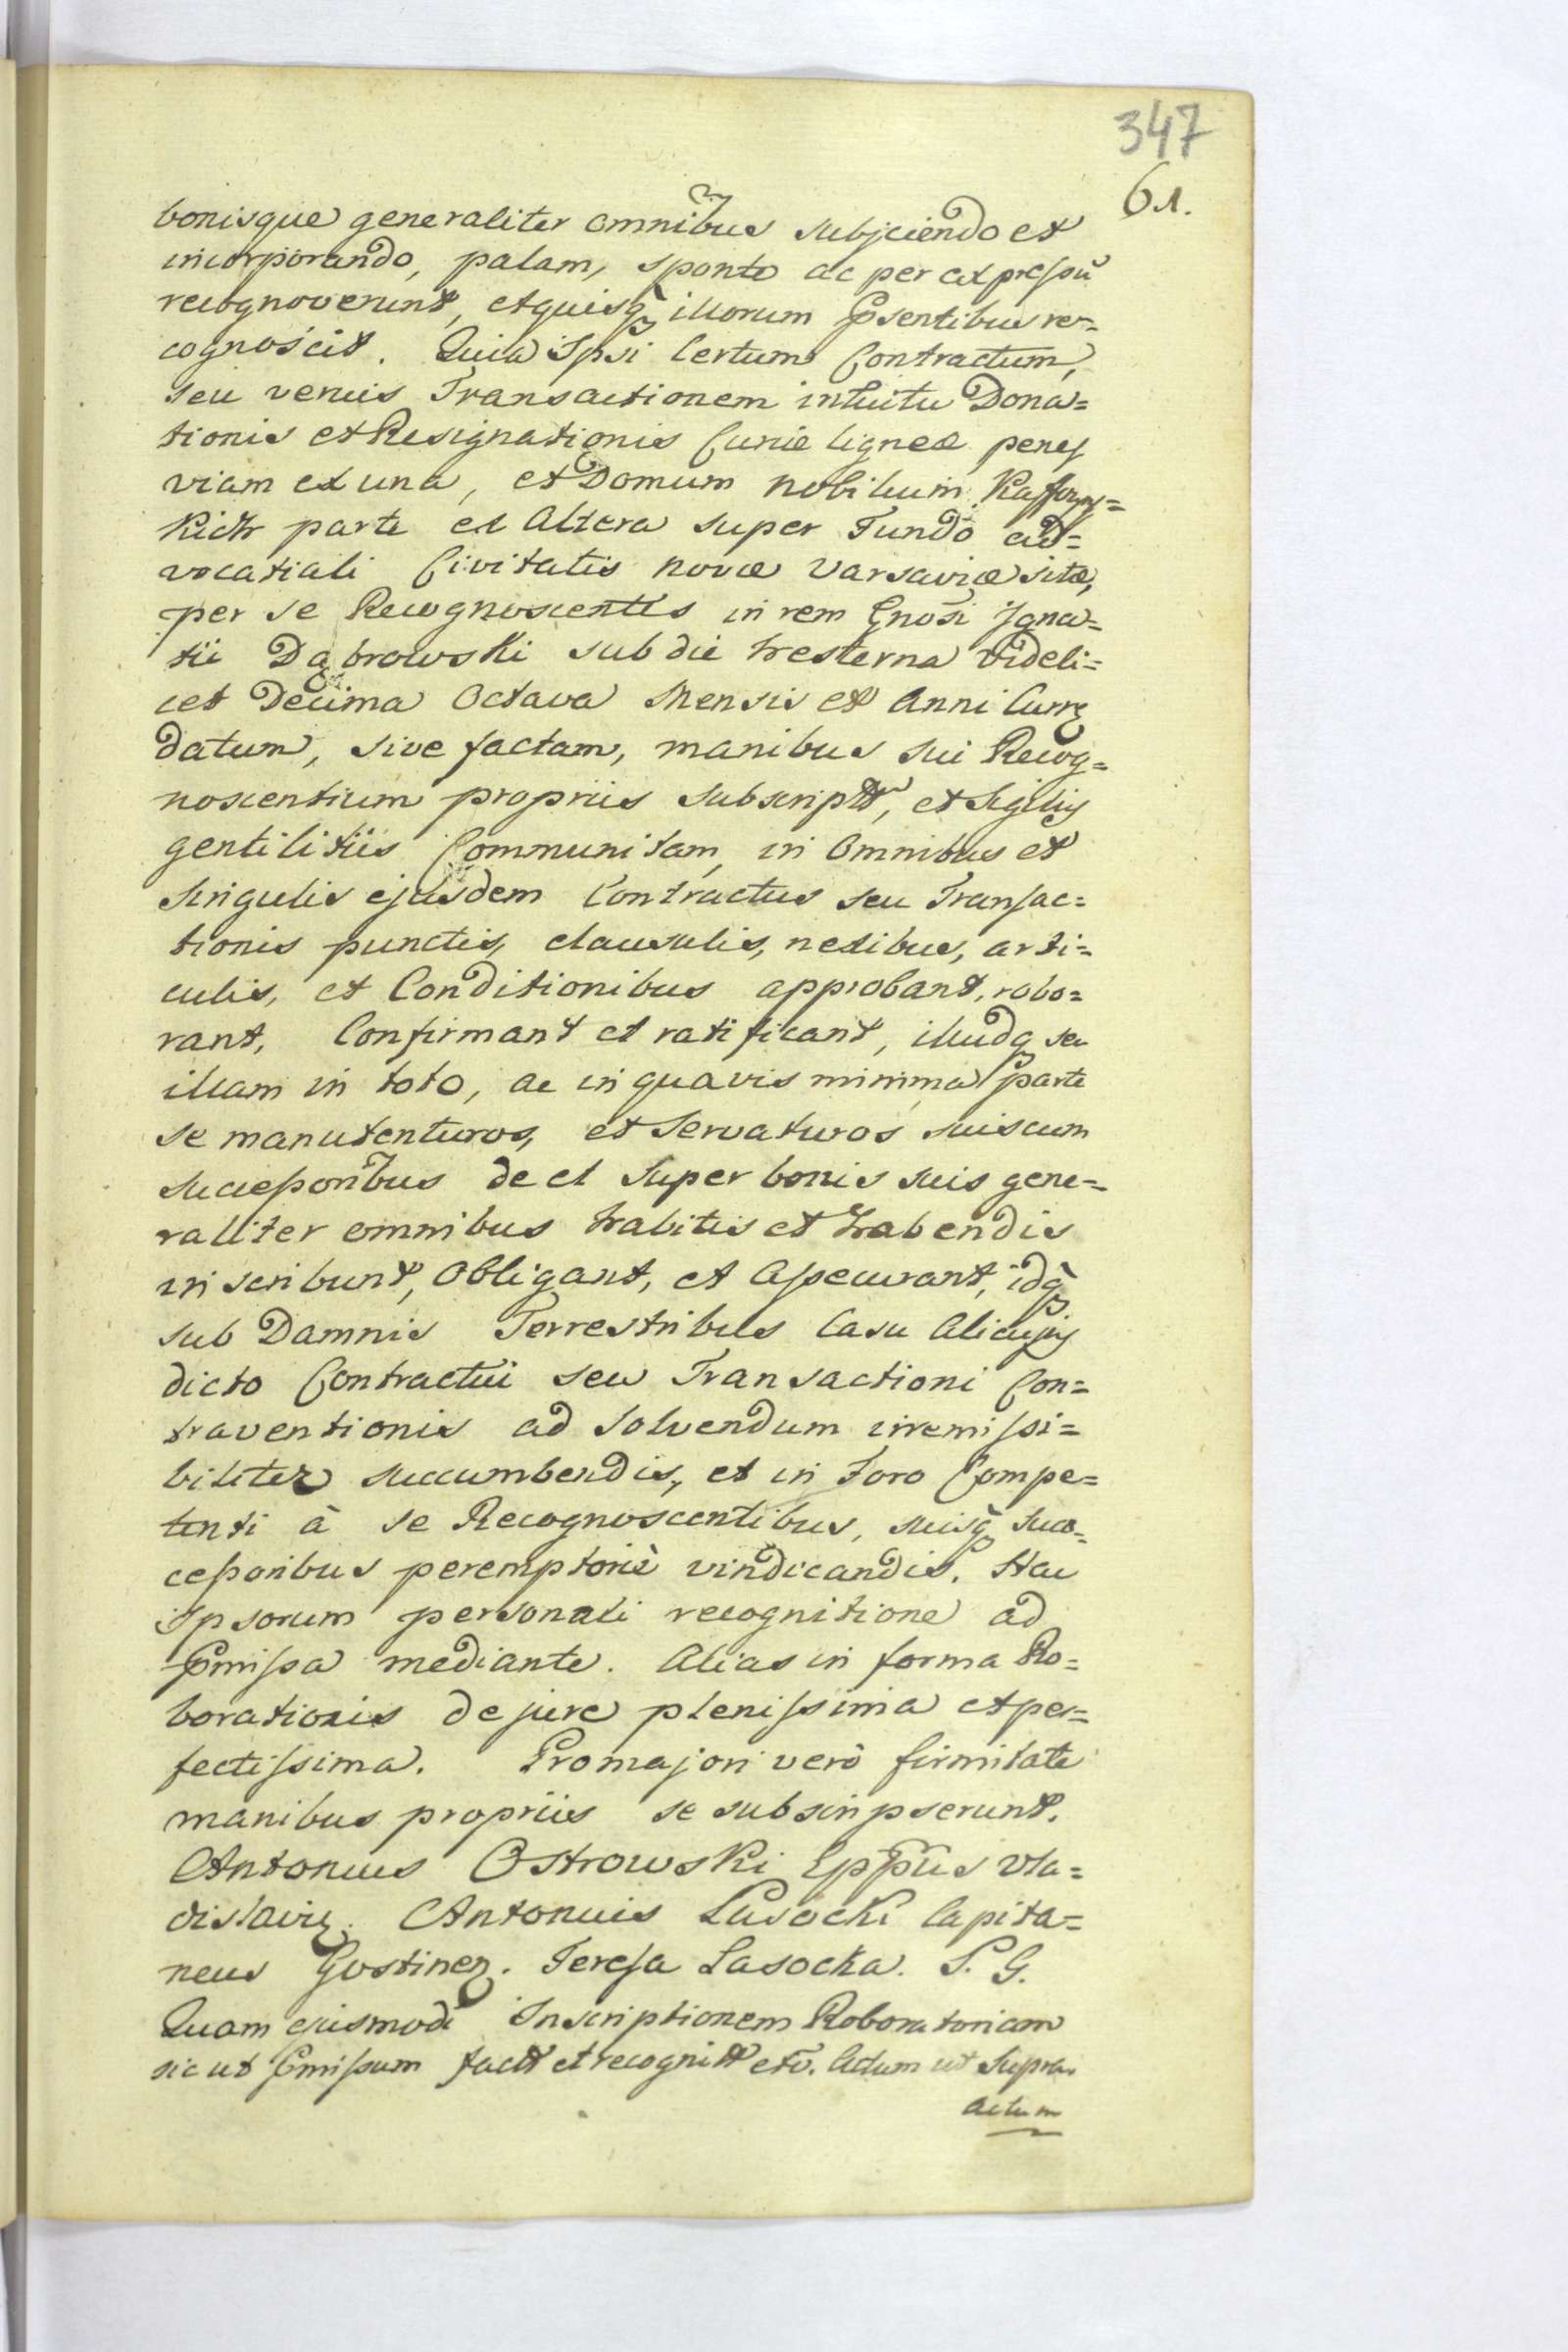 347
61.
bonisque generaliter omnibus subjiciendo et
incorporando, palam, sponte ac per expressū
recognoverunt, et quisq; illorum p̃sentibus re=
cognoscit. Quia Ipsi Certum Contractum,
seu verius Transactionem intuitu Dona=
tionis et Resignationis Curiæ ligneæ penes
viam ex una, et Domum Nobilium
parte ex Altera super Fundo ad=
vocatiali Civitatis novæ Varsaviæ sitæ,
per se Recognoscentes in rem Gnosi Igna=
tii Dąbrowski sub die hesterna videli=
cet Decima Octava Mensis et Anni Curr
datum, sive factam, manibus sui Recog=
noscentium propriis subscriptt, et Sigillis
gentilitiis Communitam, in Omnibus et
Singulis ejusdem Contractus seu Transac=
tionis punctis, clausulis, nexibus, arti=
culis, et Conditionibus approbant, robo=
rant, Confirmant et ratificant, illudq; seu
illam in toto, ac in quavis minima parte
se manutenturos, et Servaturos suiscum
Successoribus de et super bonis suis gene=
raliter omnibus habitis et habendis
inscribunt, Obligant, et Assecurant, idq;
sub Damnis Terrestribus Casu Alicujus
dicto Contractui seu Transactioni Con=
traventionis ad Solvendum irremissi=
biliter succumbendis, et in Foro Compe=
tenti à se Recognoscentibus, suisq; Suc=
cessoribus peremptoriè vindicandis. Hac
Ipsorum personali recognitione ad
p̃missa mediante. Alias in forma Ro=
borationis de jure plenissima et per=
fectissima. Pro majori verò firmitate
manibus propriis se subscripserunt.
Antonius Ostrowski Eppus Vla=
dislavie. Antonius Lasocki Capita=
neus Gostinen. Teresa Lasocka. S. G.
Quam ejusmodi Inscriptionem Roboratoriam
sic ut p̃missum factt et recognitt etc. Actum ut Supra.
Actum